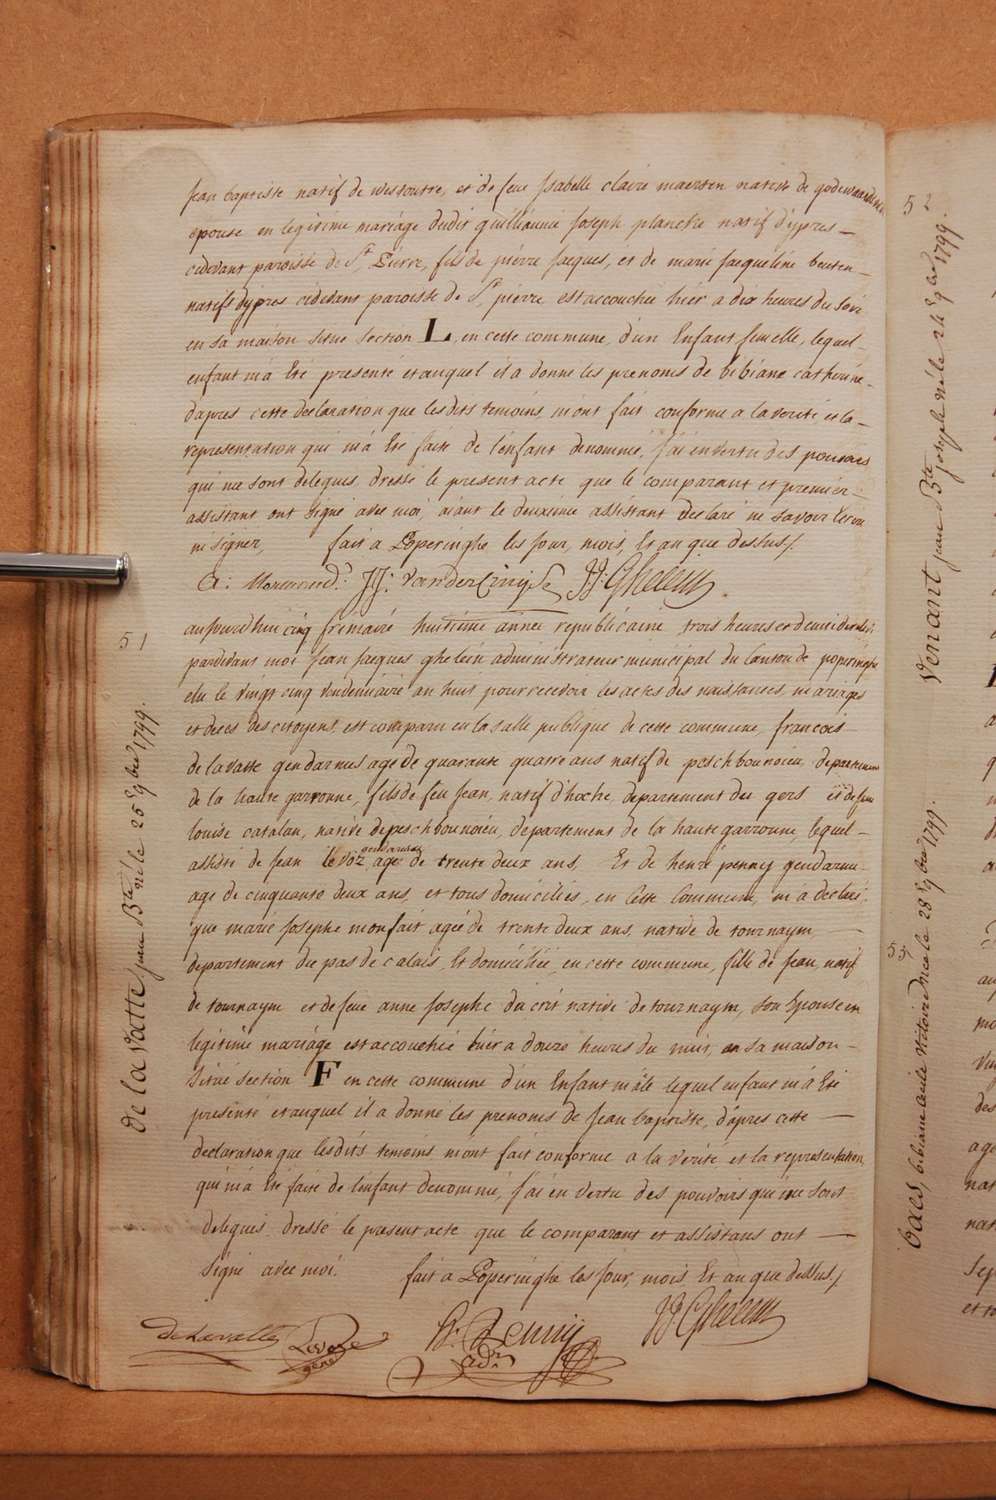 jean baptiste natif de westoutre, et de feue Isabelle claire maerten native de
épouse en legitime mariage dudit guilliaume Joseph planckè natif d'ypres —
cidevant paroisse de St Pierre, fils de pierre jacques, et de marie jacqueline beuten —
natifs d'ypres cidevant paroisse de St pierre est accouchée hier a dix heures du soir
en sa maison situe section L, en cette commune, d'un Enfant femelle, lequel —
enfant m'a Eté presenté et auquel il a donné les prenoms de bibiane catherine —
d'apres cette declaration que lesdits temoins m'ont fait conforme a la verité et la —
representation qui m'a Eté faite de l'enfant denommé, j'ai en vertu des pouvoirs
qui me sont delegués dressé le present acte que le comparant et premier —
assistant ont signé avec moi, aiant le deuxieme assistant declaré ne savoir Ecrire
ni signer, fait a Poperinghe les Jour, mois, Et an que dessus /.
JJ: Ghelein
51
De la Vatte jean Bte né le 25 9bre 1799.
aujourd'hui cinq frimaire huitieme année republicaine trois heures et demi de relevée
pardevant moi Jean Jacques ghelein administrateur municipal du Canton de poperinghe
elu le vingt cinq vendemiaire an huit pour recevoir les actes des naissances, mariages
et deces des citoyens est comparu en la salle publique de cette commune, francois —
de lavatte gendarmes age de quarante quatre ans natif de peschbounoieu, departement
de la haute garronne, fils de feu Jean, natif d'hoche, departement du gers et de feue
louise catalan, native de peschbounoieu, departement de la haute garronne lequel —
assisté de Jean levoz gendarme agé de trente deux ans, Et de henri penny gendarme
age de cinquante deux ans, et tous domicilies, en Cette Commune, m'a declaré
que marie Josephe monfait agée de trente deux ans, native de tournaym —
departement du pas de calais, Et domiciliée, en cette commune, fille de Jean, natif
de tournaym et de feue anne Josephe du crit native de tournaym, son Epouse en
legitime mariage est accouchée hier a douze heures du nuit, en sa maison —
situe section F en cette commune d'un Enfant mâle lequel enfant m'a Eté
presenté et auquel il a donné les prenoms de Jean baptiste, d'apres cette —
declaration que lesdits temoins m'ont fait conforme a la verité et la representation,
qui m'a Eté faite de l'enfant denommé, j'ai en vertu des pouvoirs qui me sont
delegués dressé le present acte que le comparant et assistans ont —
signé avec moi. fait a Poperinghe les Jour, mois Et an que dessus /
Delavatte Levoze gene H: Penny JJ: Ghelein
52
Venant jean Bte joseph né le 24 9bre 1799.
53
Caes, bibiane née le 28 9bre 1799.